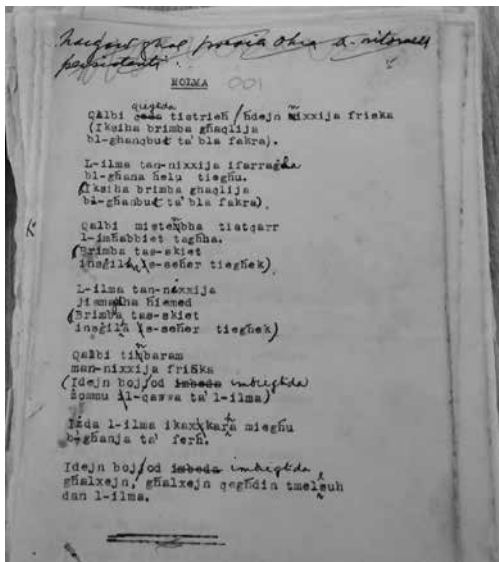 għal poesija Oħra ritornell
persistenti.
ĦOLMA 001
qiegħda
Qalbi tistrieħ / ħdejn nixxija friska
(Iksiha brimba għaqlija
bl-għanqbut ta' bla fakra).
L-ilma tan-nixxija jfarraġha
bl-għana ħelu tiegħu.
(Iksiha brimba għaqlija
bl-għanbut ta' bla fakra).
Qalbi mistenbħa tistqarr
l-imħabbiet tagħha.
(Brimba tas-skiet
insġilha s-seħer tiegħek)
L-ilma tan-nixxija
jismagħha hiemed
(Brimba tas-skiet
insġilha s-seħer tiegħek)
Qalbi tinbaram
man-nixxija friska
(Idejn bojod imbiegħda
żommu l-qawwa ta' l-ilma)
Iżda l-ilma jkaxkarha miegħu
b'għanja ta' ferħ.
Idejn bojod imbiegħda
għalxejn, għalxejn qegħdin tmelsuh
dan l-ilma.